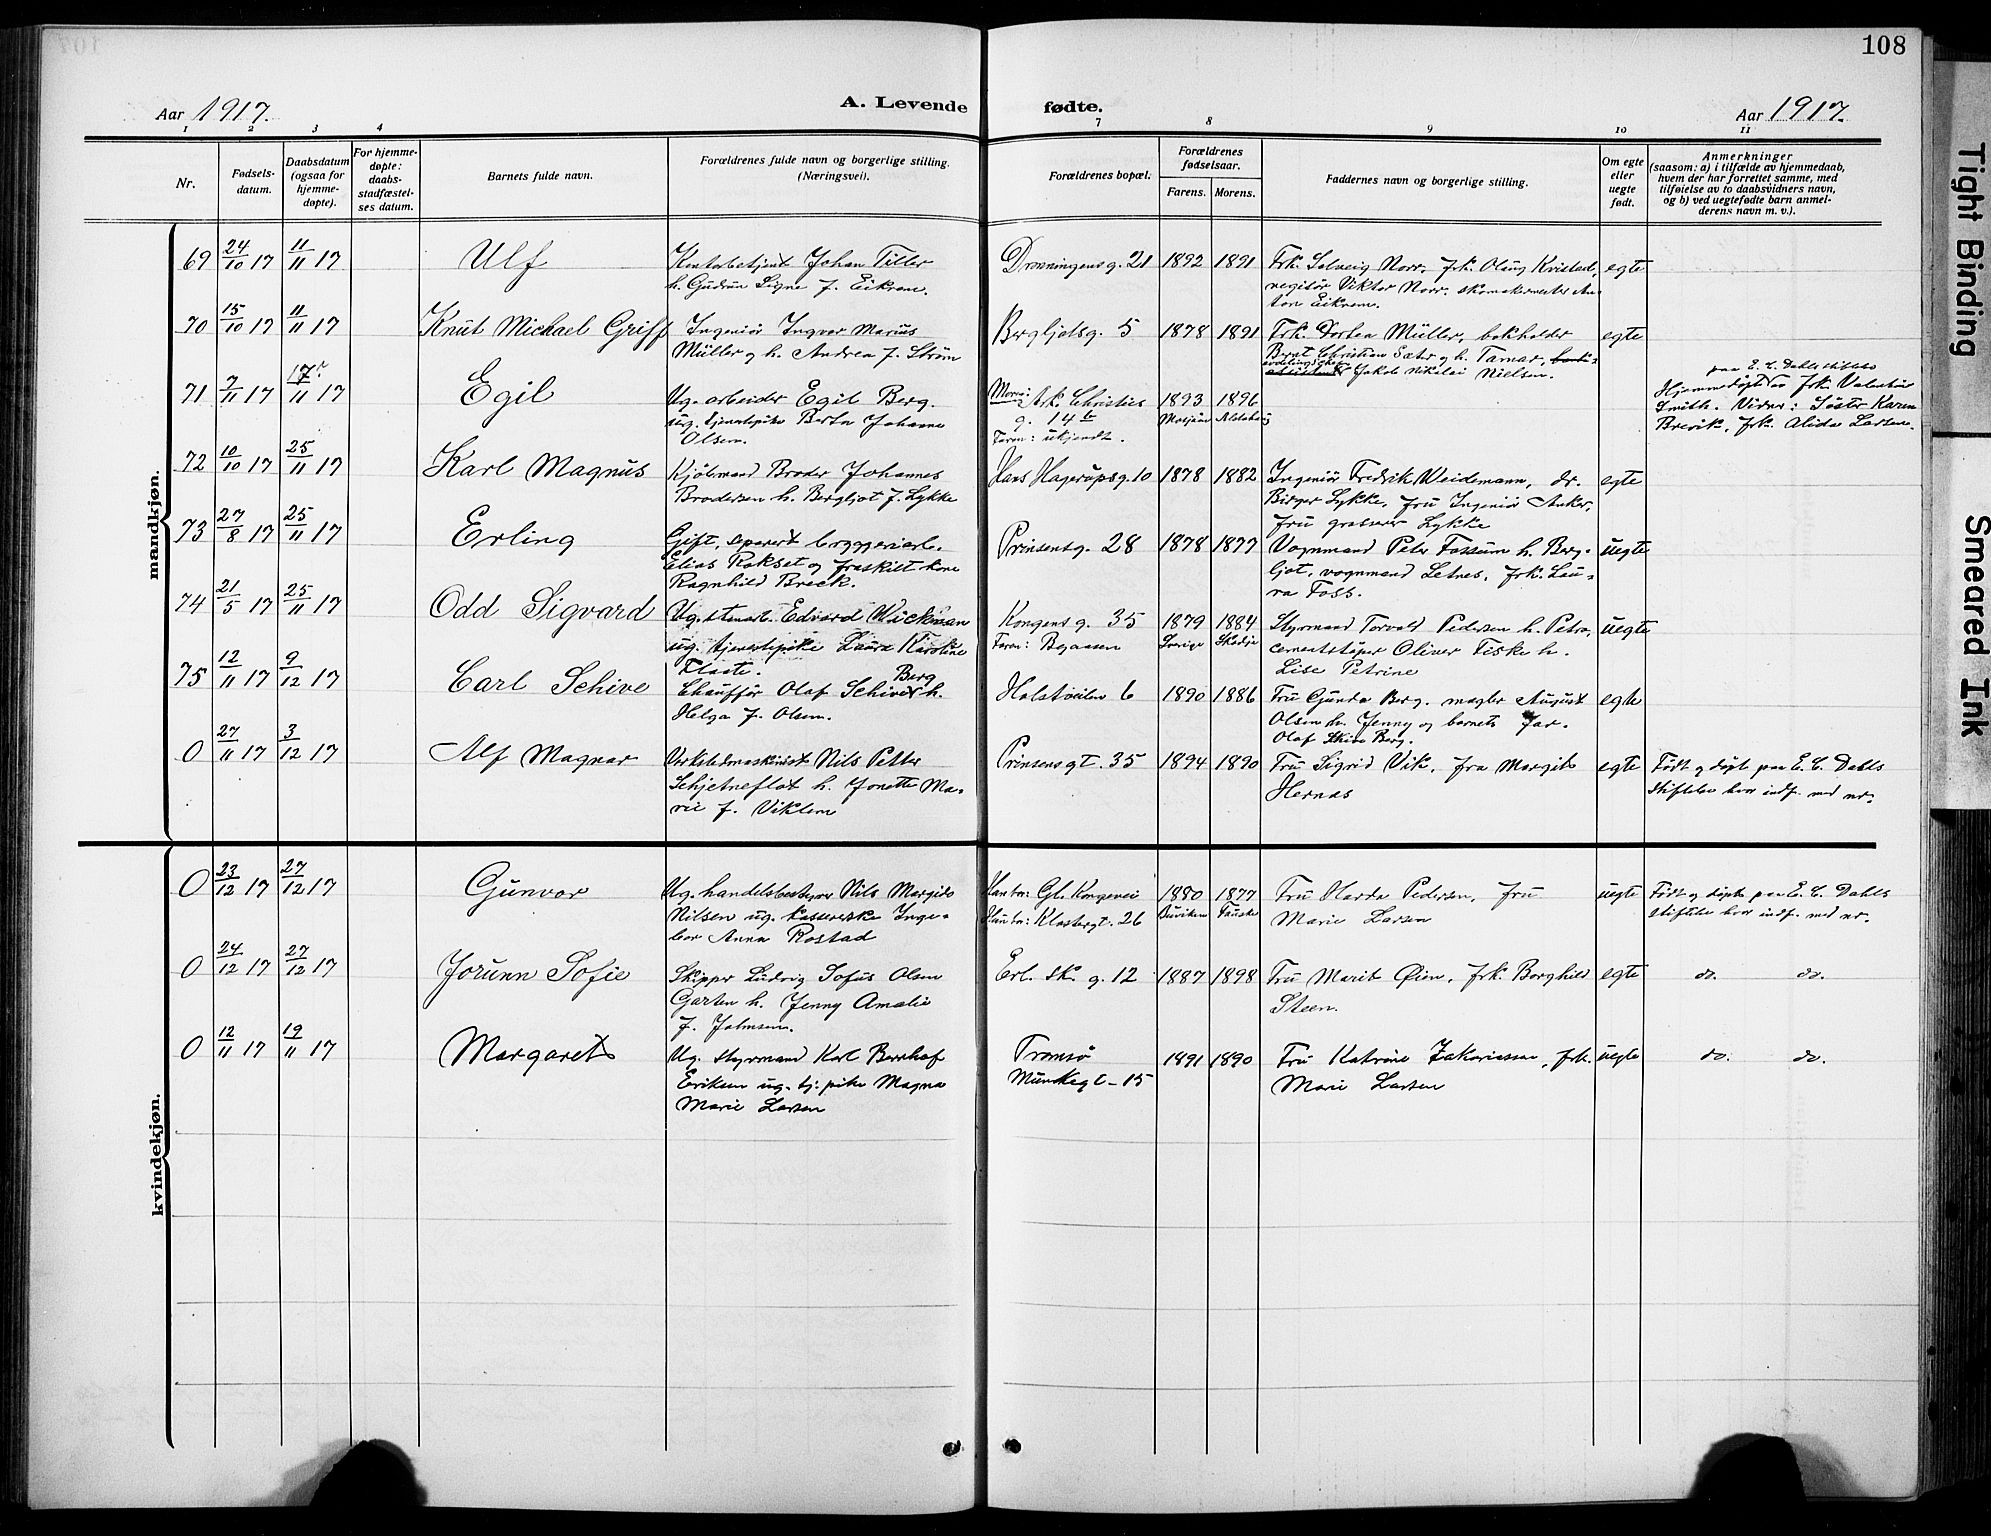 108
Aar 1917.
A. Levende fødte.
Aar 1917.
1 2 3 4
7 8 9 10 11
Nr.
Fødsels-
datum.
Daabsdatum
(ogsaa for
hjemme-
døpte).
For hjemme-
døpte:
daabs-
stadfæstel-
ses datum.
Barnets fulde navn.
Forældrenes fulde navn og borgerlige stilling.
(Næringsvei).
Forældrenes bopæl.
Forældrenes
fødselsaar.
Farens. Morens.
Faddernes navn og borgerlige stilling.
Om egte
eller
uegte
født.
Anmerkninger
(saasom: a) i tilfælde av hjemmedaab,
hvem der har forrettet samme, med
tilføielse av to daabsvidners navn,
og b) ved uegtefødte barn anmel-
derens navn m. v.).
mandkjøn.
69 24/10 17 11/11 17 Ulf
Kontorbetjent Johan Tiller
h. Gudrun Signe f. Eikrem.
Dronningensg. 21 1892 1891
Frk. Solveig Norr, frk. Oling Kvistad,
Viktor Norr. skomakermester An-
ton Eikrem.
egte
70 15/10 17 11/11 17 Knut Michael Griff
Ingeniør Ingvar Marius
Müller og h. Andrea f. Strøm
Bergljotsg. 5 1878 1891
Frk. Dortea Müller, bokholder
Bernt Christian Sæter og h. Tamar,
Jakob Nikolai Nielsen.
egte
71 7/11 17 17/11 17 Egil
Ug. arbeider Egil Berg.
ug. tjenestepike Berta Johanne
Olsen.
Moren: Ark. Christies
g. 14 b
Faren: ukjendt.
1893 1896
Mosjøen Alstahaug
paa E. C. Dahls stiftelse
Hjemmedøpt av frk. Valentine
Smith. Vidner: Søster Karen
Brevik, frk. Alida Larsen.
72 10/10 17 25/11 17 Karl Magnus
Kjøbmand Broder Johannes
Brodersen h. Bergljot f. Lykke
Hans Hagerupsg. 10 1878 1882
Ingeniør Fredrik Weidemann, dr.
Birger Lykke, fru Ingeniør Anker,
fru grosserer Lykke
egte
73 27/8 17 25/11 17 Erling
Gift, separert bryggeriarb.
Elias Rokset og fraskilt kone
Ragnhild Breck.
Prinsensg. 28 1878 1877
Vognmand Peter Fossum h. Berg-
ljot, vognmand Letnes, frk. Lau-
ra Foss.
uegte
74 21/5 17 25/11 17 Odd Sigvard
Ug. stenarb. Edvard Wickman
ug. tjenestepike Laura Karoline
Flaate.
Kongensg. 35 1879 1884
Faren: Byaasen Sverige Skodje
Styrmand Torvald Pedersen h. Petra,
cementstøper Oliver Fiske h.
Lise Petrine
uegte
75 12/11 17 9/12 17 Carl Schive
Berg
Chauffør Olaf Schive h.
Helga f. Olsen.
Holstveien 6 1890 1886
Fru Gunda Berg. mægler August
Olsen h. Jenny og barnets far.
Olaf Skive Berg.
egte
0 27/11 17 3/12 17 Alf Magnar
Verkstedmaskinist Nils Petter
Schjetneflot h. Jonette Ma-
rie f. Viklem
Prinsensgt. 35 1894 1890
Fru Sigrid Vik, fru Margit
Hernas
egte
Født og døpt paa E. C. Dahls
stiftelse hvor indf. med nr.
kvindekjøn.
0 23/12 17 27/12 17 Gunvor
Ug. handelsbestyrer Nils Margido
Nilsen ug. kassererske Inge-
bor Anna Rostad
Han bor: Gl. Kongevei
Hun bor: Klostergt. 26
1880 1877
Buviken Fauske
Fru Harda Pedersen, fru
Marie Larsen
uegte
Født og døpt paa E. C. Dahls
stiftelse hvor indf. med nr.
0 24/12 17 27/12 17 Jorunn Sofie
Skipper Ludvig Sofus Olsen
Garten h. Jenny Amalie
f. Johnsen.
Erl. sk. g. 12 1887 1898
Fru Marit Øien, frk. Borghild
Steen.
egte
do. do.
0 12/11 17 19/11 17 Margaret
Ug. styrmand Karl Bernhof
Eriksen ug. tj. pike Magna
Marie Larsen
Tromsø
Munkegt. 15
1891 1890
Fru Katrine Zakariassen, frk.
Marie Larsen
uegte
do. do.
Tight Binding
Smeared Ink